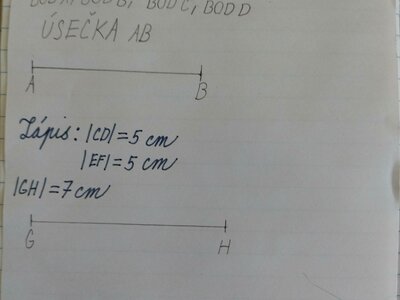 BOD A, BOD B, BOD C, BOD D
ÚSEČKA AB
A B
Zápis: |CD| = 5 cm
|EF| = 5 cm
|GH| = 7 cm
G H